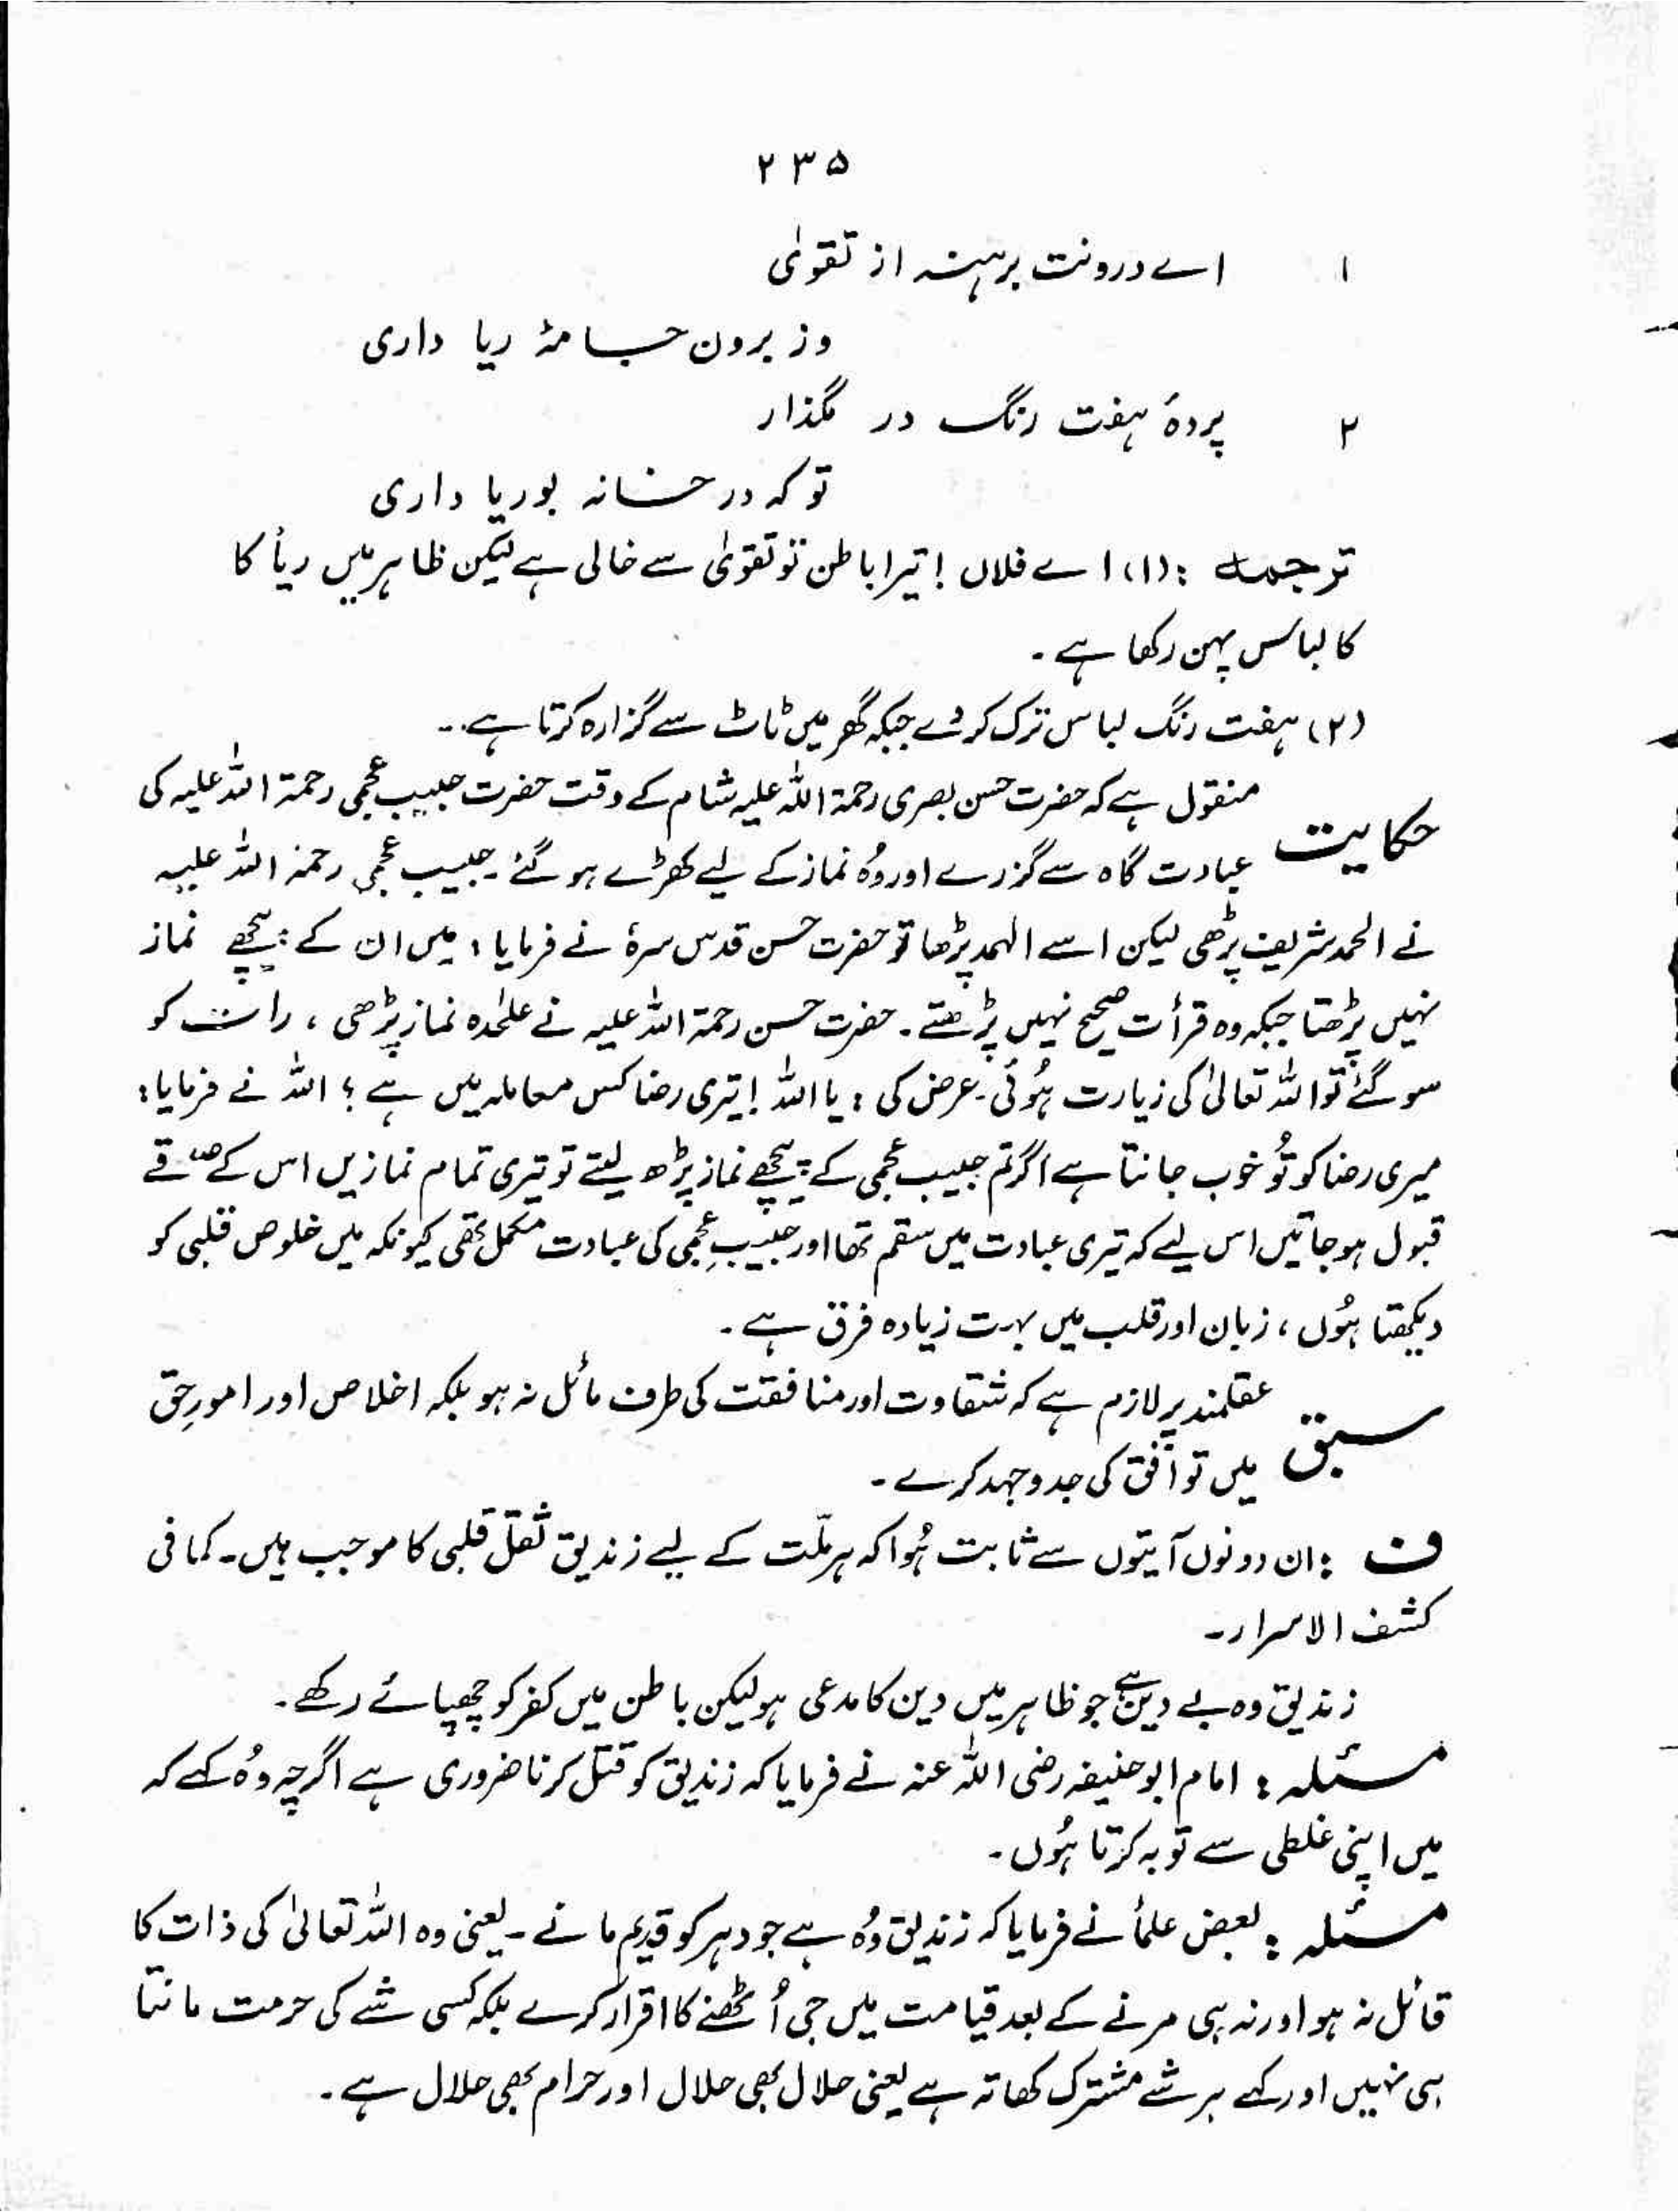 ۲۳۵
۱ اے درونت برہنہ از تقویٰ
وز برون جامۂ ریا داری
۲ پردۂ ہفت رنگ در مگذار
تو کہ در خانہ بوریا داری
ترجمہ : (۱) اے فلاں ! تیرا باطن تو تقویٰ سے خالی ہے لیکن ظاہر میں ریأ کا
کا لباس پہن رکھا ہے ۔
(۲) ہفت رنگ لباس ترک کر دے جبکہ گھر میں ٹاٹ سے گزارہ کرتا ہے ۔
حکایت منقول ہے کہ حضرت حسن بصری رحمۃ اللہ علیہ شام کے وقت حضرت حبیب عجمی رحمۃ اللہ علیہ کی
عبادت گاہ سے گزرے اور وُہ نماز کے لیے کھڑے ہو گئے ۔ حبیب عجمی رحمۃ اللہ علیہ
نے الحمد شریف پڑھی لیکن اسے الہمد پڑھا تو حضرت حسن قدس سرہٗ نے فرمایا : میں ان کے پیچھے نماز
نہیں پڑھتا جبکہ وہ قرأت صحیح نہیں پڑھتے ۔ حضرت حسن رحمۃ اللہ علیہ نے علٰحدہ نماز پڑھی ، رات کو
سو گئے تو اللہ تعالیٰ کی زیارت ہُوئی ۔ عرض کی : یا اللہ ! تیری رضا کس معاملہ میں ہے ؟ اللہ نے فرمایا :
میری رضا کو تُو خوب جانتا ہے اگر تم حبیب عجمی کے پیچھے نماز پڑھ لیتے تو تیری تمام نمازیں اس کے صدقے
قبول ہو جاتیں اس لیے کہ تیری عبادت میں سقم تھا اور حبیبِ عجمی کی عبادت مکمل تھی کیونکہ میں خلوص قلبی کو
دیکھتا ہُوں ، زبان اور قلب میں بہت زیادہ فرق ہے ۔
سبق عقلمند پر لازم ہے کہ شقاوت اور منافقت کی طرف مائل نہ ہو بلکہ اخلاص اور امورِ حق
میں توافق کی جدوجہد کرے ۔
ف : ان دونوں آیتوں سے ثابت ہُوا کہ ہر ملّت کے لیے زندیق ثقل قلبی کا موجب ہیں ۔ کما فی
کشف الاسرار ۔
زندیق وہ بے دین ہے جو ظاہر میں دین کا مدعی ہو لیکن باطن میں کفر کو چھپائے رکھے ۔
مسئلہ : امام ابو حنیفہ رضی اللہ عنہ نے فرمایا کہ زندیق کو قتل کرنا ضروری ہے اگرچہ وُہ کہے کہ
میں اپنی غلطی سے توبہ کرتا ہُوں ۔
مسئلہ : بعض علمأ نے فرمایا کہ زندیق وُہ ہے جو دہر کو قدیم مانے ۔ یعنی وہ اللہ تعالیٰ کی ذات کا
قائل نہ ہو اور نہ ہی مرنے کے بعد قیامت میں جی اُٹھنے کا اقرار کرے بلکہ کسی شے کی حرمت مانتا
ہی نہیں اور کہے ہر شے مشترک کھاتہ ہے یعنی حلال بھی حلال اور حرام بھی حلال ہے ۔